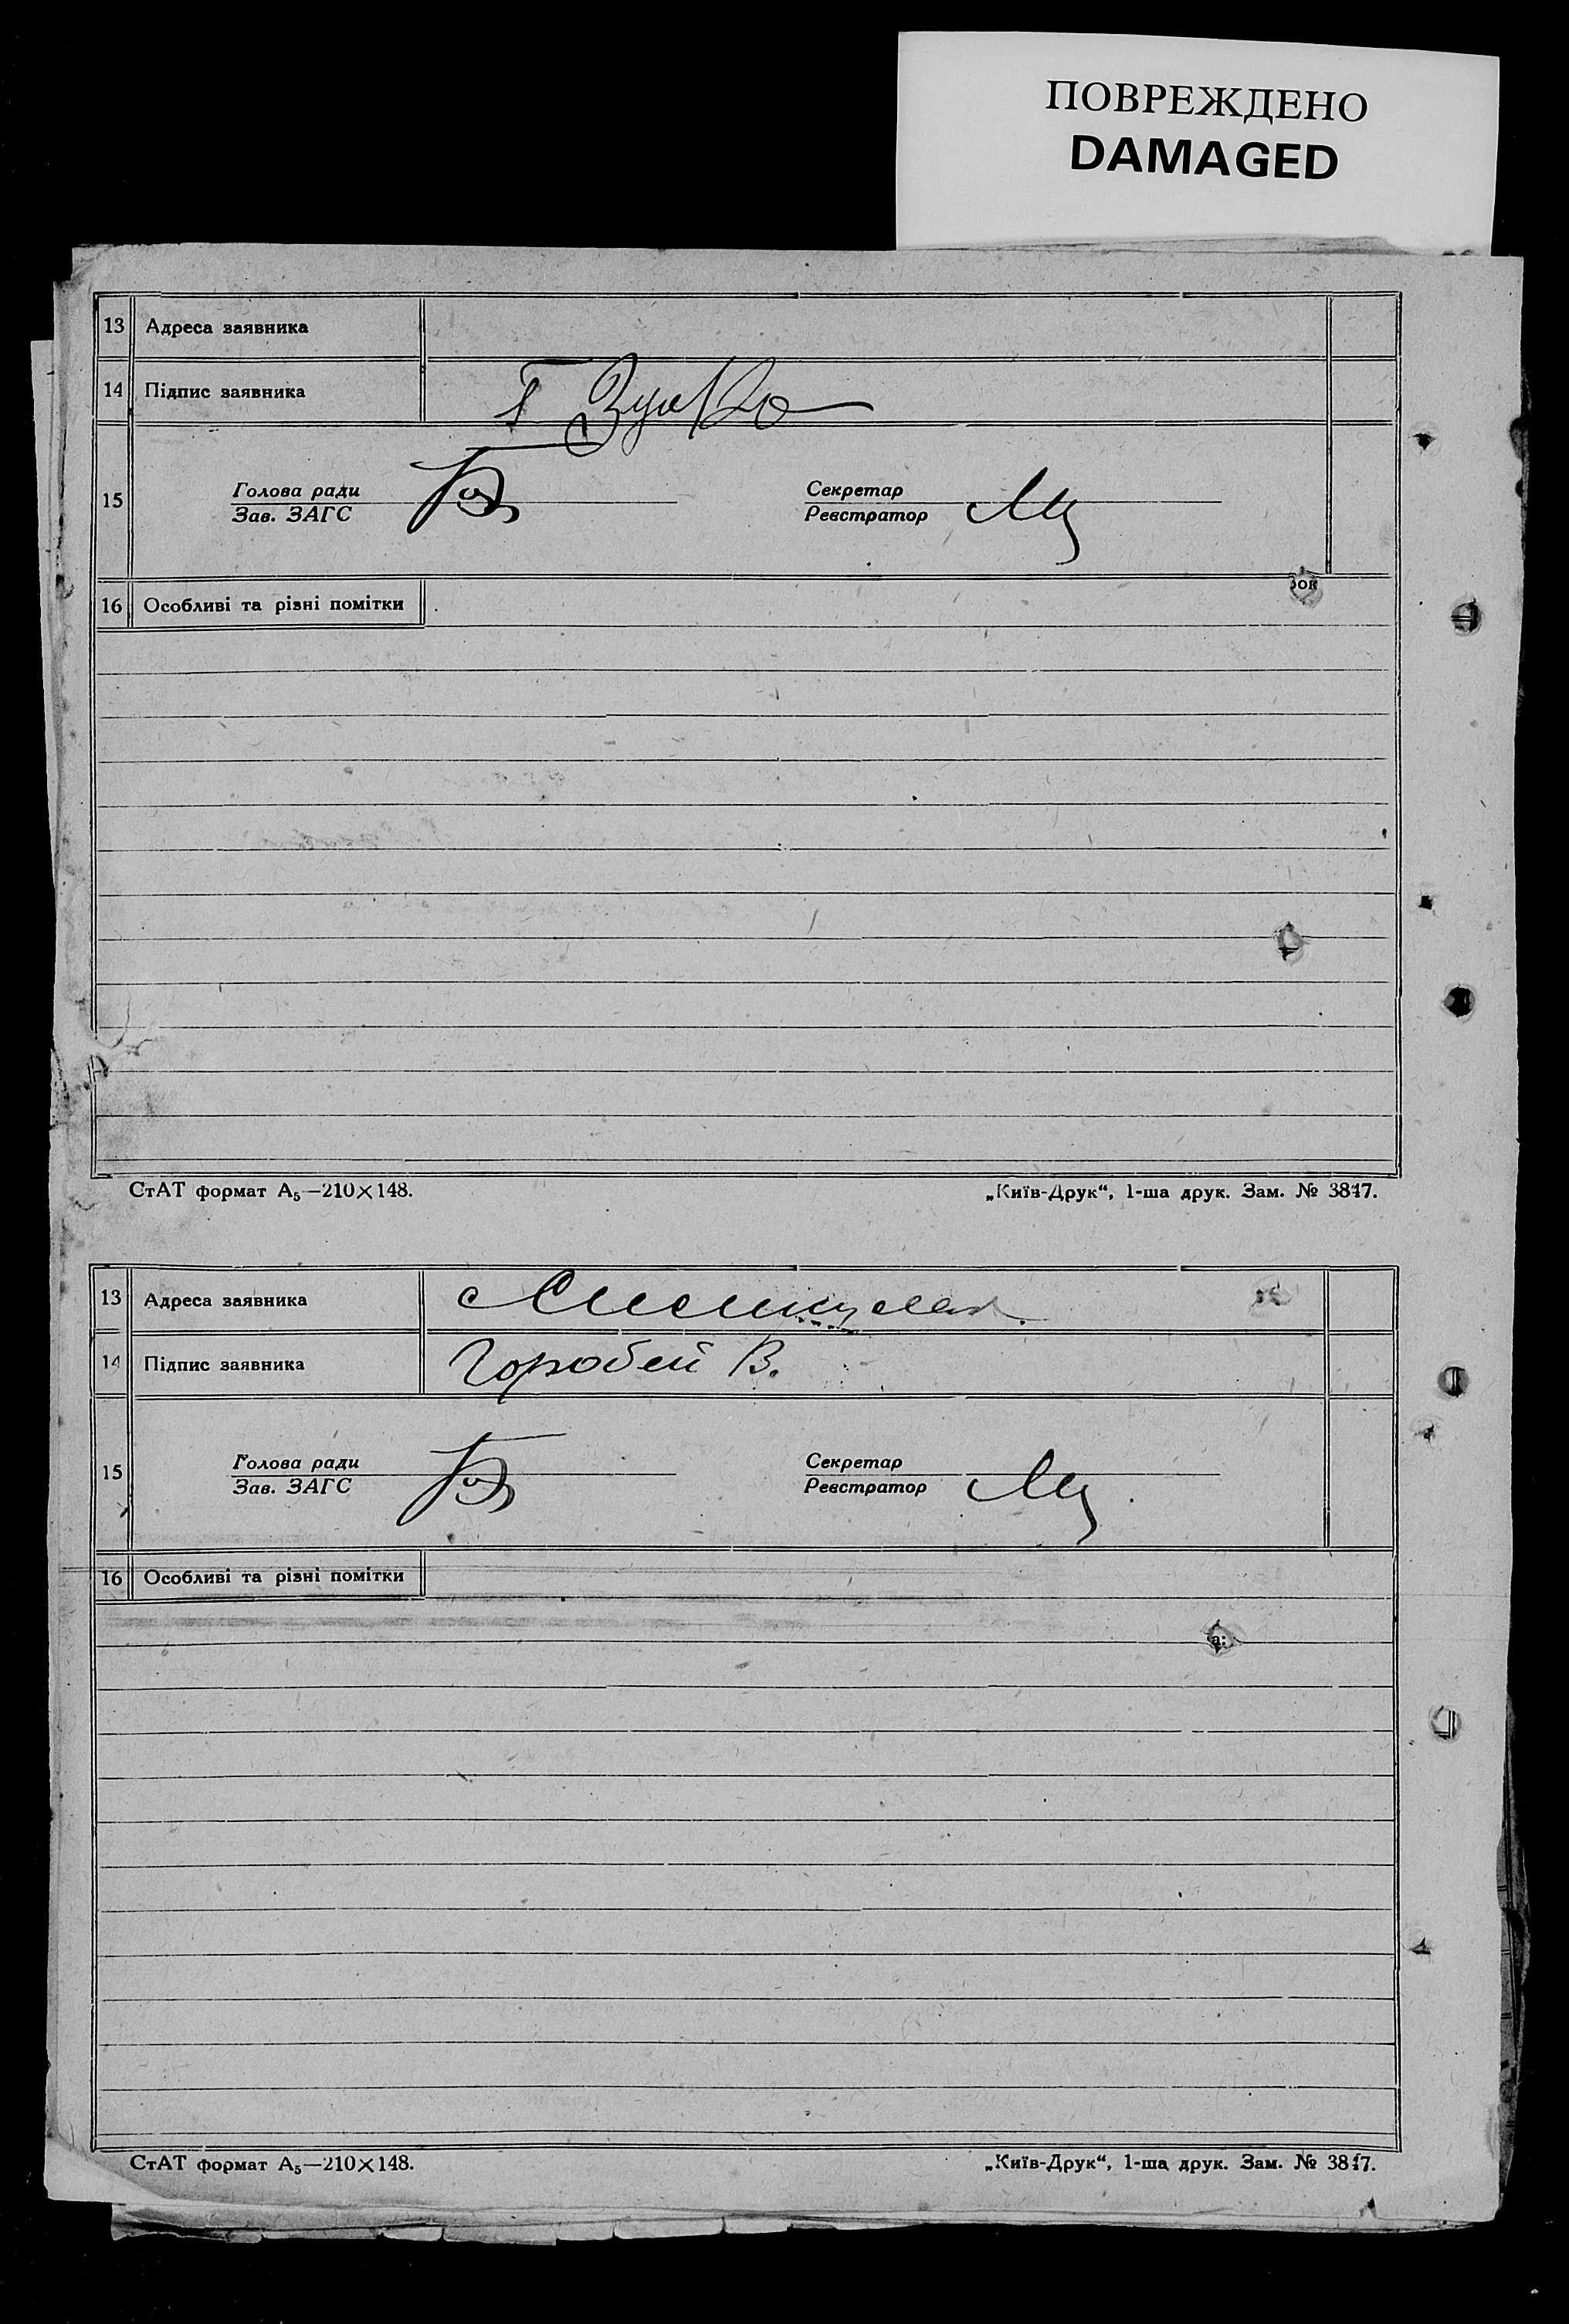 ПОВРЕЖДЕНО
DAMAGED
13 Адреса заявника
14 Підпис заявника
15 Голова ради Секретар
Зав. ЗАГС Реєстратор
рок
16 Особливі та різні помітки
СтАТ формат А₅—210×148. „Київ-Друк“, 1-ша друк. Зам. № 3817.
13 Адреса заявника
14 Підпис заявника Горобей В.
15 Голова ради Секретар
Зав. ЗАГС Реєстратор
16 Особливі та різні помітки
а:
СтАТ формат А₅—210×148. „Київ-Друк“, 1-ша друк. Зам. № 3817.